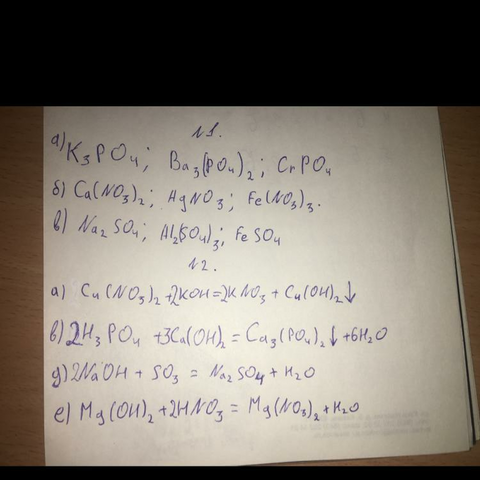 №1.
а) K₃PO₄; Ba₃(PO₄)₂; CrPO₄
б) Ca(NO₃)₂; AgNO₃; Fe(NO₃)₃.
в) Na₂SO₄; Al₂(SO₄)₃; FeSO₄
№2.
а) Cu(NO₃)₂+2KOH=2KNO₃+Cu(OH)₂↓
в) 2H₃PO₄+3Ca(OH)₂=Ca₃(PO₄)₂↓+6H₂O
д) 2NaOH+SO₃=Na₂SO₄+H₂O
е) Mg(OH)₂+2HNO₃=Mg(NO₃)₂+H₂O